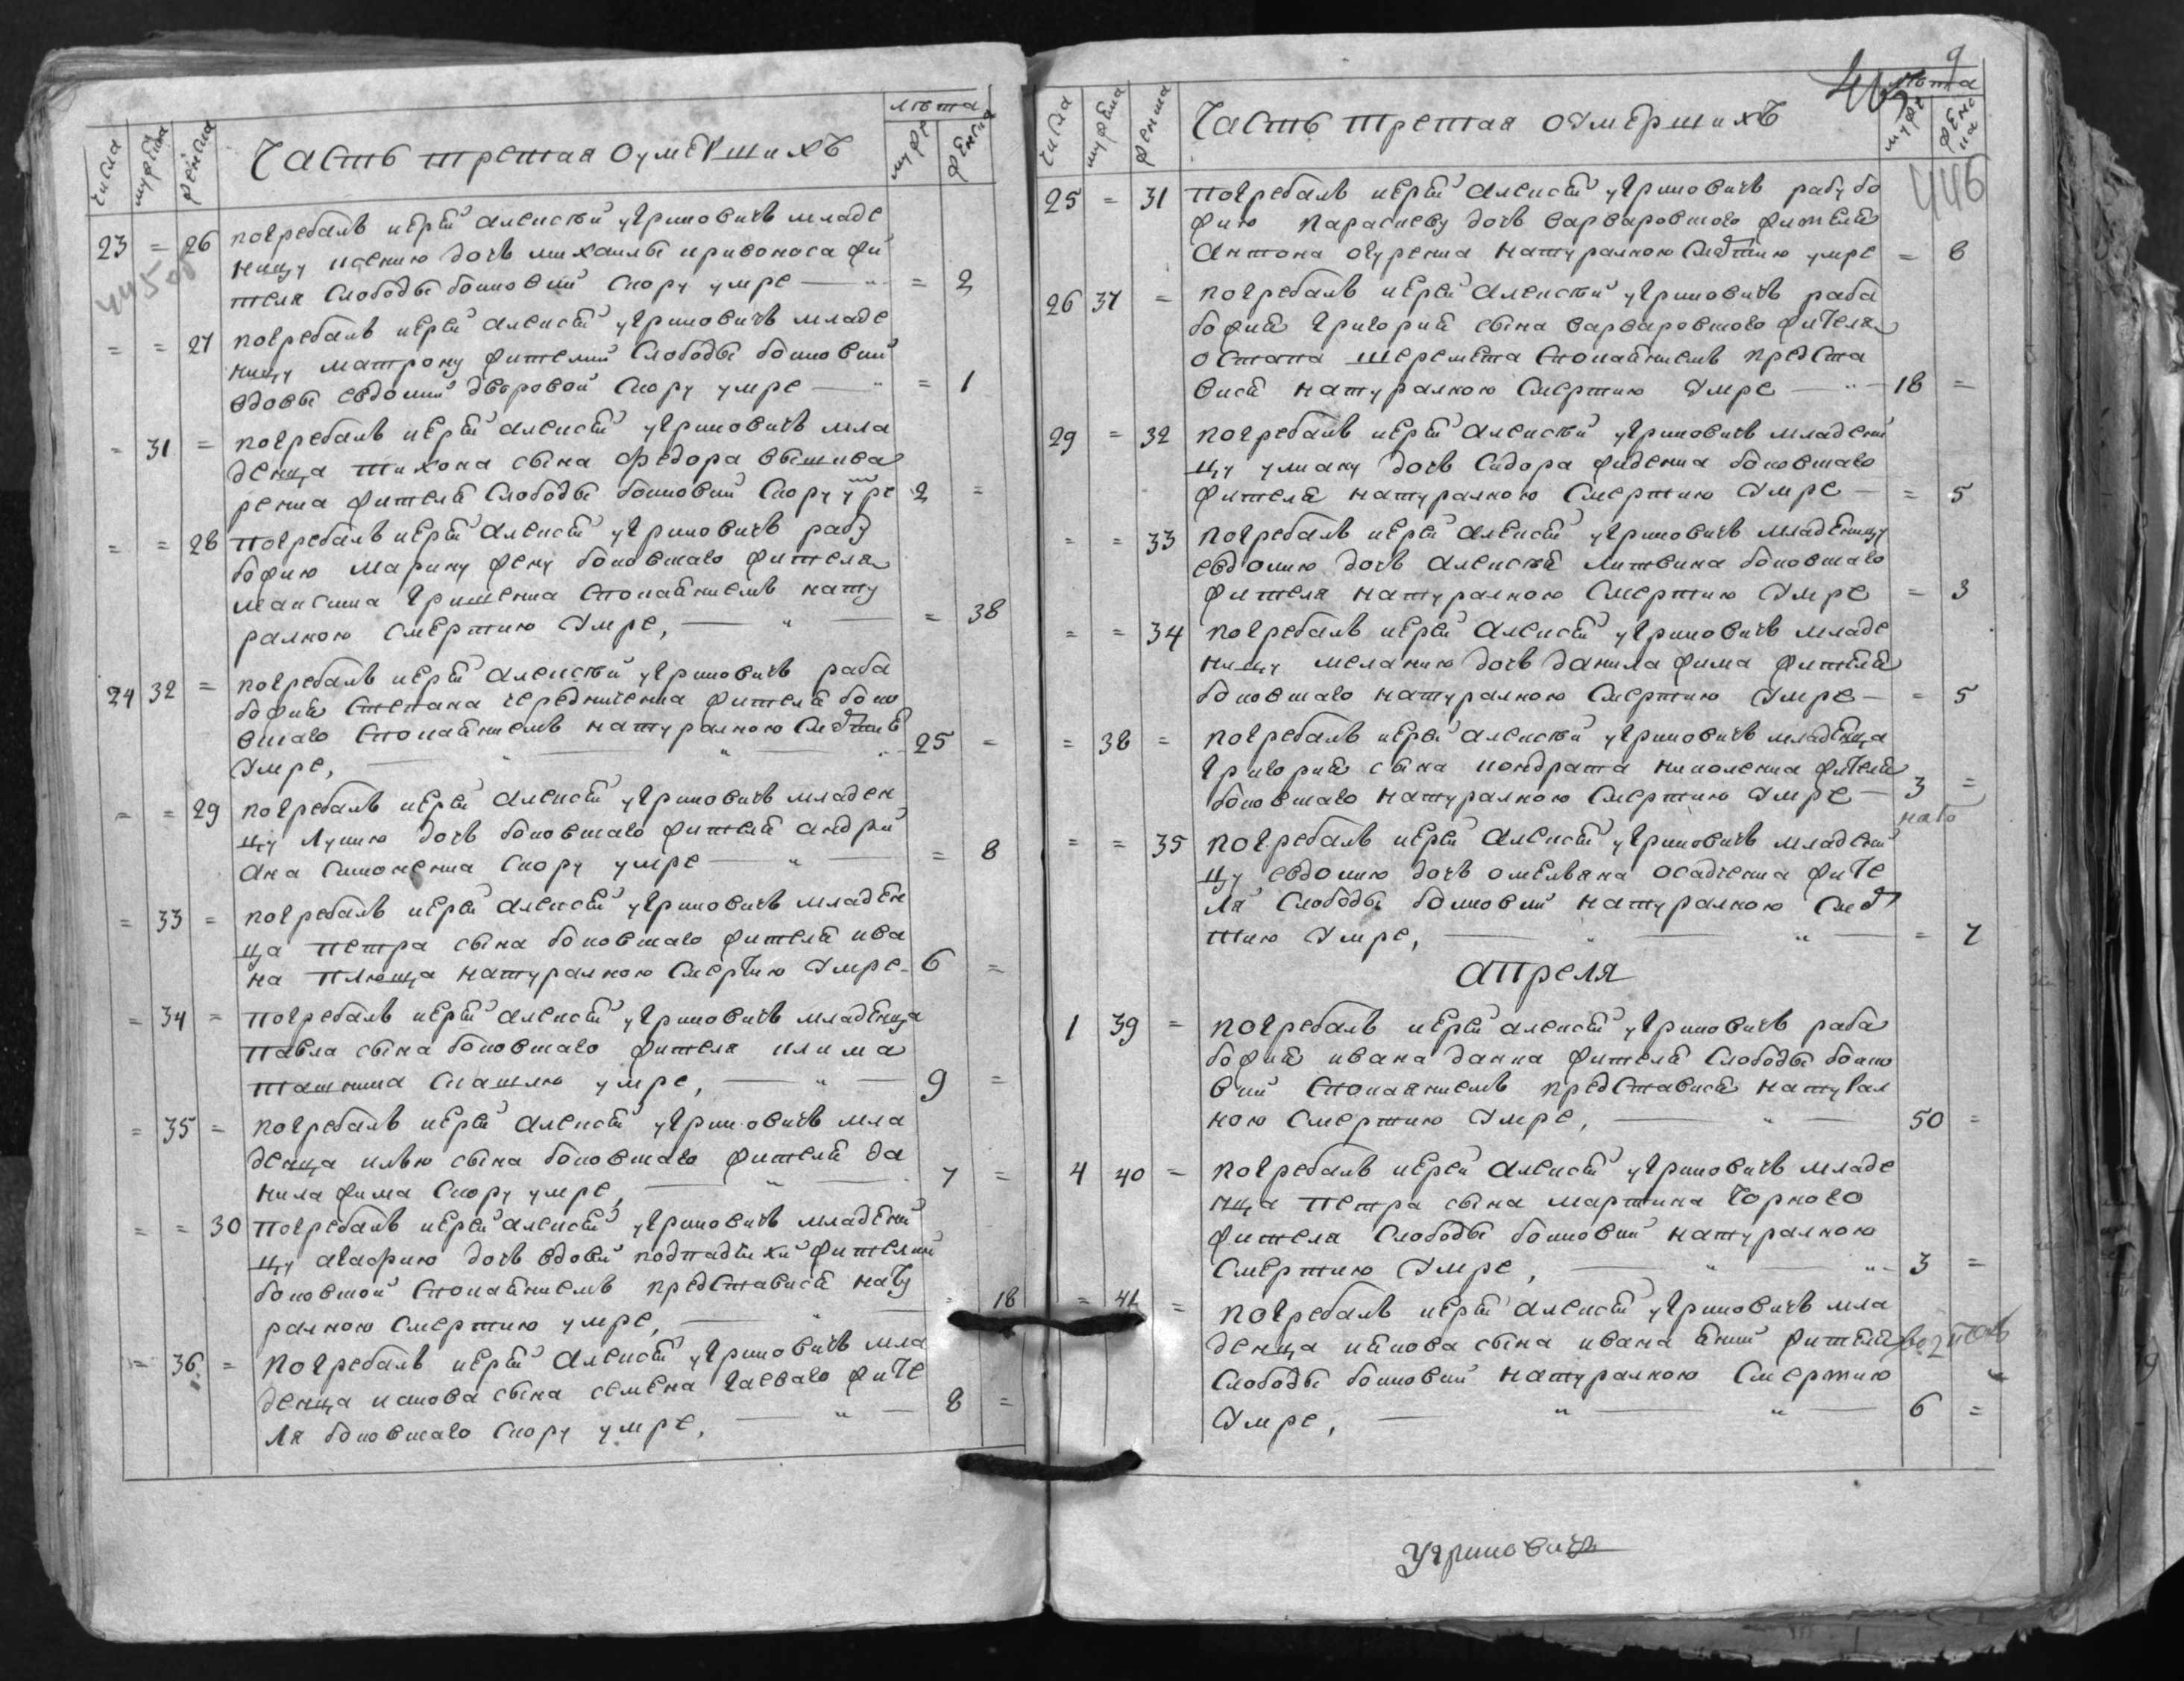 лѣта
числа мужеска женска Часть третая оумершихъ мужес женска
23 = 26 погребалъ иерей алексѣй угриновичъ младе
ницу ксению дочъ михаила кривоноса жи
теля Слободы боиковки Скору умре — = 2
= = 27 погребалъ иерей алексѣй угриновичъ младе
ницу матрону жителки Слободы боиковки
вдовы евдокии дворовой Скору умре — = 1
= 31 = погребалъ иерей алексѣй угриновичъ мла
денца тихона сына федора вышива
ренка жителя Слободы боиковки Скору умре 2 =
= = 28 погребалъ иерей алексѣй угриновичъ рабу
божию марину жену боковшаго жителя
максима гришенка Спокаяниемъ нату
ралною Смертию Умре, — " — = 38
24 32 = погребалъ иерей алексѣй угриновичъ раба
божия Степана чередниченка жителя боко
вшаго Спокаяниемъ натуралною Смертию
Умре, — " — 25 =
= = 29 погребалъ иерей алексѣй угриновичъ младен
цу Лукию дочъ боковшаго жителя андри
ана Симоненка Скору умре — " — = 8
= 33 = погребалъ иерей алексѣй угриновичъ младен
ца петра сына боковшаго жителя ива
на плюща натуралною Смертию Умре 6 =
= 34 = погребалъ иерей алексѣй угриновичъ младенца
павла сына боковшаго жителя клима
Скашлю умре, — " — 9 =
= 35 = погребалъ иерей алексѣй угриновичъ мла
денца илью сына боковшаго жителя да
нила жима Скору умре, — " — 7 =
= = 30 погребалъ иерей алексѣй угриновичъ младени
цу агафию дочъ вдови жителки
боковшой Спокаяниемъ представися нату
ралною Смертию умре, — " — = 18
= 36 = погребалъ иерей алексѣй угриновичъ мла
денца иакова сына семена гаеваго жите
ля боковшаго Скору умре, — " — 8 =
9
лѣта
числа мужеска женска Часть третая оумершихъ мужес женска
446
25 = 31 погребалъ иерей алексѣй угриновичъ рабу бо
жию параскеву дочъ варваровшаго жителя
антона огуренка натуралною Смертию умре = 8
26 37 = погребалъ иерей алексѣй угриновичъ раба
божия григория сына варваровшаго жителя
остапа шеремета Спокаяниемъ предста
вися натуралною Смертию Умре — 18 =
29 = 32 погребалъ иерей алексѣй угриновичъ младени
цу улиану дочъ Сидора жиденка боковшаго
жителя натуралною Смертию Умре — = 5
= = 33 погребалъ иерей алексѣй угриновичъ младеницу
евдокию дочъ алексѣя литвина боковшаго
жителя натуралною Смертию Умре = 3
= = 34 погребалъ иерей алексѣй угриновичъ младе
ницу меланию дочъ данила жима жителя
боковшаго натуралною Смертию Умре — = 5
= 38 = погребалъ иерей алексѣй угриновичъ младенца
григория сына кондрата николенка жителя
боковшаго натуралною Смертию Умре — 3 =
= = 35 погребалъ иерей алексѣй угриновичъ младени
цу евдокию дочъ омеляна осадченка жите
ля Слободы боиковки натуралною Смер
тию Умре, — " — " — = 7
апреля
1 39 = погребалъ иерей алексѣй угриновичъ раба
божия ивана данка жителя Слободы боико
вки Спокаяниемъ представися натурал
ною Смертию Умре, — " — 50 =
4 40 = погребалъ иерей алексѣй угриновичъ младе
нца петра сына мартина чорного
жителя Слободы боиковки натуралною
Смертию Умре, — " — 3 =
= 41 = погребалъ иерей алексѣй угриновичъ мла
денца иакова сына ивана жителя
Слободы боиковки натуралною Смертию
Умре, — " — " — 6 =
Угриновичъ